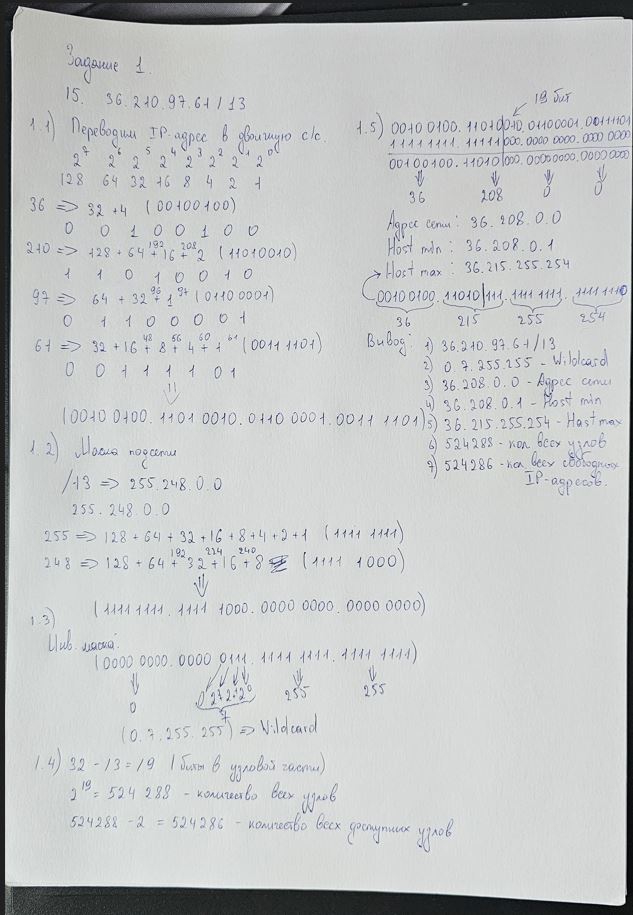 Задание 1.
15. 36.210.97.61 / 13
1.1) Переводим IP-адрес в двоичную с/с.
2⁷ 2⁶ 2⁵ 2⁴ 2³ 2² 2¹ 2⁰
128 64 32 16 8 4 2 1
36 => 32 + 4 (00100100)
0 0 1 0 0 1 0 0
192 208
210 => 128 + 64 + 16 + 2 (11010010)
1 1 0 1 0 0 1 0
96 97
97 => 64 + 32 + 1 (0110 0001)
0 1 1 0 0 0 0 1
48 56 60 61
61 => 32 + 16 + 8 + 4 + 1 (0011 1101)
0 0 1 1 1 1 0 1
(0010 0100. 1101 0010. 0110 0001. 0011 1101)
1.2) Маска подсети
/13 => 255.248.0.0
255.248.0.0
255 => 128 + 64 + 32 + 16 + 8 + 4 + 2 + 1 (1111 1111)
192 224 240
248 => 128 + 64 + 32 + 16 + 8 (1111 1000)
(1111 1111. 1111 1000. 0000 0000. 0000 0000)
1.3)
Инв. маска:
(0000 0000. 0000 0111. 1111 1111. 1111 1111)
0 0 2² 2¹ 2⁰ 255 255
7
(0.7.255.255) => Wildcard
1.4) 32 - 13 = 19 (биты в узловой части)
2¹⁹ = 524 288 - количество всех узлов
524288 - 2 = 524286 - количество всех доступных узлов
19 бит
1.5) 0010 0100. 11010|010. 01100001. 00111101
1111 1111. 11111|000. 0000 0000. 0000 0000
00100100. 11010|000. 00000000. 0000 0000
36 208 0 0
Адрес сети: 36.208.0.0
Host min: 36.208.0.1
Host max: 36.215.255.254
0010 0100. 11010|111. 1111 1111. 1111 1110
36 215 255 254
Вывод: 1) 36.210.97.61/13
2) 0.7.255.255 - Wildcard
3) 36.208.0.0 - Адрес сети
4) 36.208.0.1 - Host min
5) 36.215.255.254 - Host max
6) 524288 - кол всех узлов
7) 524286 - кол всех свободных
IP-адресов.